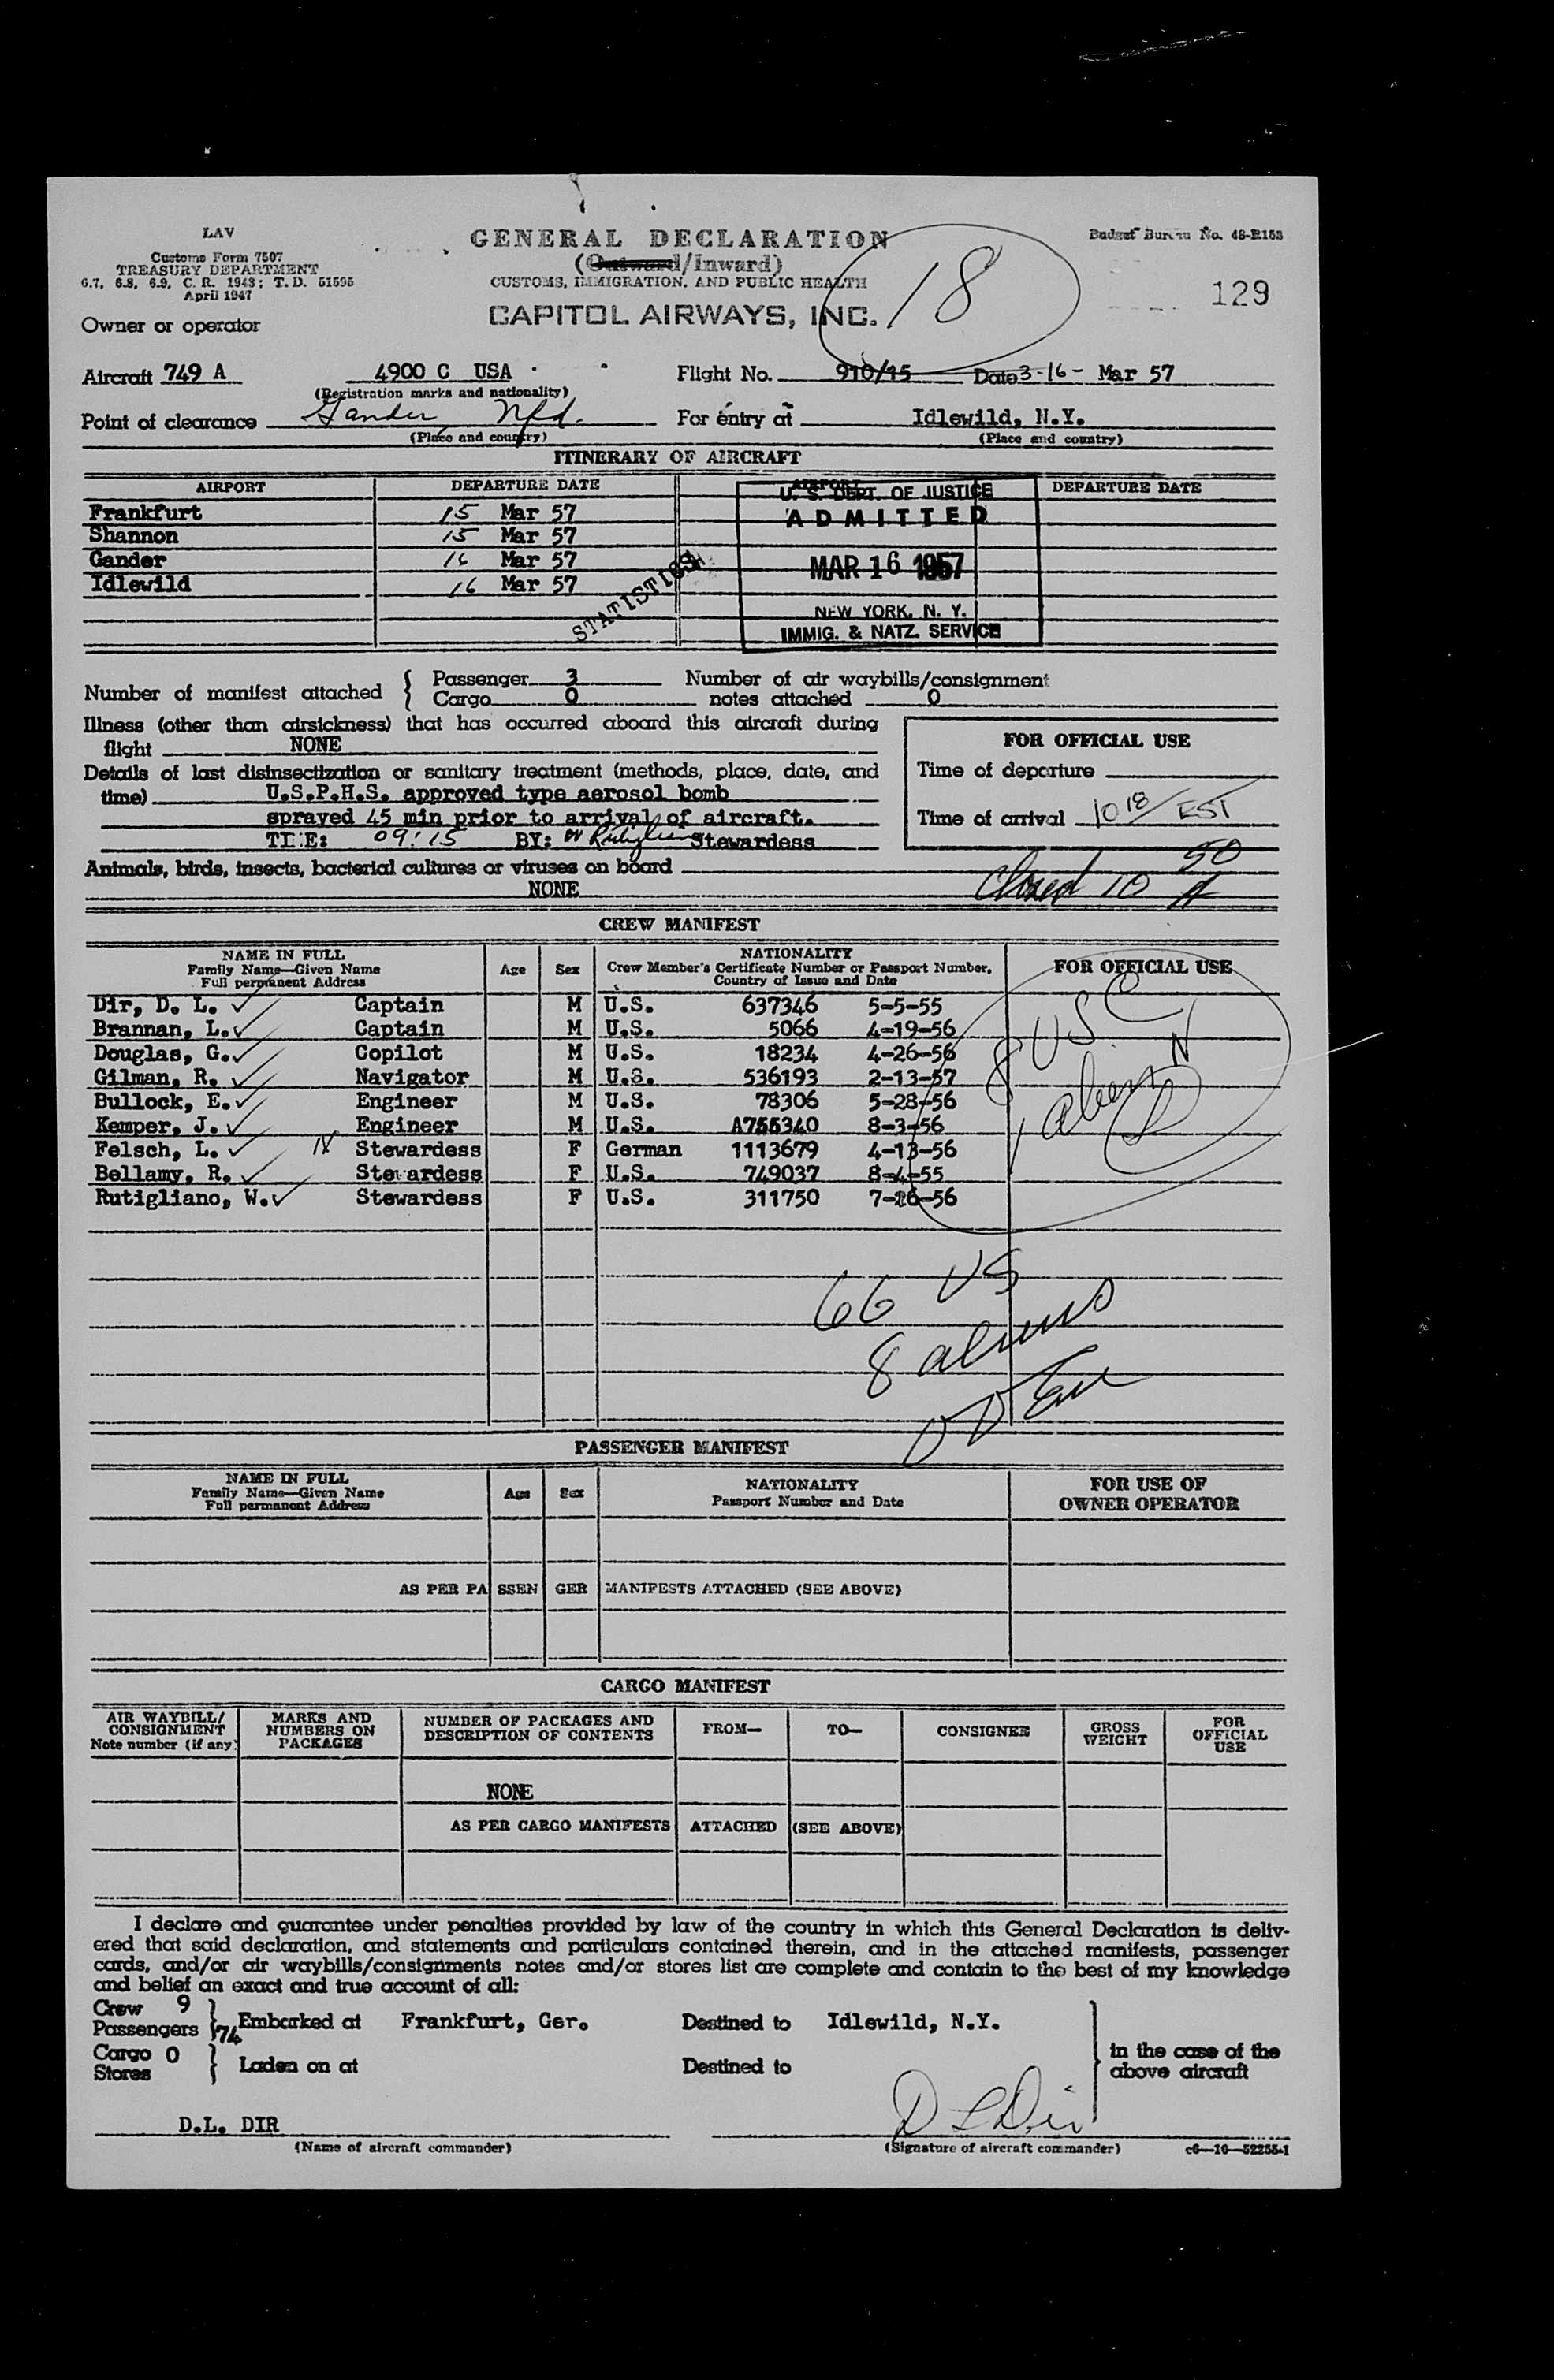 LAV
Customs Form 7507
TREASURY DEPARTMENT
6.7, 6.8, 6.9, C. R. 1943; T. D. 51595
April 1947
GENERAL DECLARATION
(Outward/Inward)
CUSTOMS, IMMIGRATION, AND PUBLIC HEALTH
Budget Bureau No. 48-R153
18
129
Owner or operator CAPITOL AIRWAYS, INC.
Aircraft 749 A 4900 C USA Flight No. 910/15 Date 3-16- Mar 57
(Registration marks and nationality)
Point of clearance Gander Nfd. For entry at Idlewild, N.Y.
(Place and country) (Place and country)
ITINERARY OF AIRCRAFT
AIRPORT DEPARTURE DATE AIRPORT DEPARTURE DATE
Frankfurt 15 Mar 57
Shannon 15 Mar 57
Gander 16 Mar 57
Idlewild 16 Mar 57
STATISTICS
U. S. DEPT. OF JUSTICE
ADMITTED
MAR 16 1957
NEW YORK, N. Y.
IMMIG. & NATZ. SERVICE
Number of manifest attached { Passenger 3 Number of air waybills/consignment
Cargo 0 notes attached 0
Illness (other than airsickness) that has occurred aboard this aircraft during
flight NONE
Details of last disinsectization or sanitary treatment (methods, place, date, and
time) U.S.P.H.S. approved type aerosol bomb
sprayed 45 min prior to arrival of aircraft.
TIME: 09:15 BY: W Rutigliano Stewardess
FOR OFFICIAL USE
Time of departure
Time of arrival 10 18/ EST
Animals, birds, insects, bacterial cultures or viruses on board
NONE
Closed 10 50 A
CREW MANIFEST
NAME IN FULL
Family Name—Given Name
Full permanent Address
Age Sex
NATIONALITY
Crew Member's Certificate Number or Passport Number,
Country of Issue and Date
FOR OFFICIAL USE
Dir, D. L. Captain M U.S. 637346 5-5-55
Brannan, L. Captain M U.S. 5066 4-19-56
Douglas, G. Copilot M U.S. 18234 4-26-56
Gilman, R. Navigator M U.S. 536193 2-13-57
Bullock, E. Engineer M U.S. 78306 5-28-56
Kemper, J. Engineer M U.S. A755340 8-3-56
Felsch, L. Stewardess F German 1113679 4-13-56
Bellamy, R. Stewardess F U.S. 749037 8-4-55
Rutigliano, W. Stewardess F U.S. 311750 7-26-56
8 USC
1 alien
66 US
8 aliens
PASSENGER MANIFEST
NAME IN FULL
Family Name—Given Name
Full permanent Address
Age Sex
NATIONALITY
Passport Number and Date
FOR USE OF
OWNER OPERATOR
AS PER PASSENGER MANIFESTS ATTACHED (SEE ABOVE)
CARGO MANIFEST
AIR WAYBILL/
CONSIGNMENT
Note number (if any)
MARKS AND
NUMBERS ON
PACKAGES
NUMBER OF PACKAGES AND
DESCRIPTION OF CONTENTS
FROM— TO— CONSIGNEE
GROSS
WEIGHT
FOR
OFFICIAL
USE
NONE
AS PER CARGO MANIFESTS ATTACHED (SEE ABOVE)
I declare and guarantee under penalties provided by law of the country in which this General Declaration is deliv-
ered that said declaration, and statements and particulars contained therein, and in the attached manifests, passenger
cards, and/or air waybills/consignments notes and/or stores list are complete and contain to the best of my knowledge
and belief an exact and true account of all:
Crew 9
Passengers 74 } Embarked at Frankfurt, Ger. Destined to Idlewild, N.Y.
Cargo 0
Stores } Laden on at Destined to
in the case of the
above aircraft
D.L. DIR D L Dir
(Name of aircraft commander) (Signature of aircraft commander) c6—16—52255-1